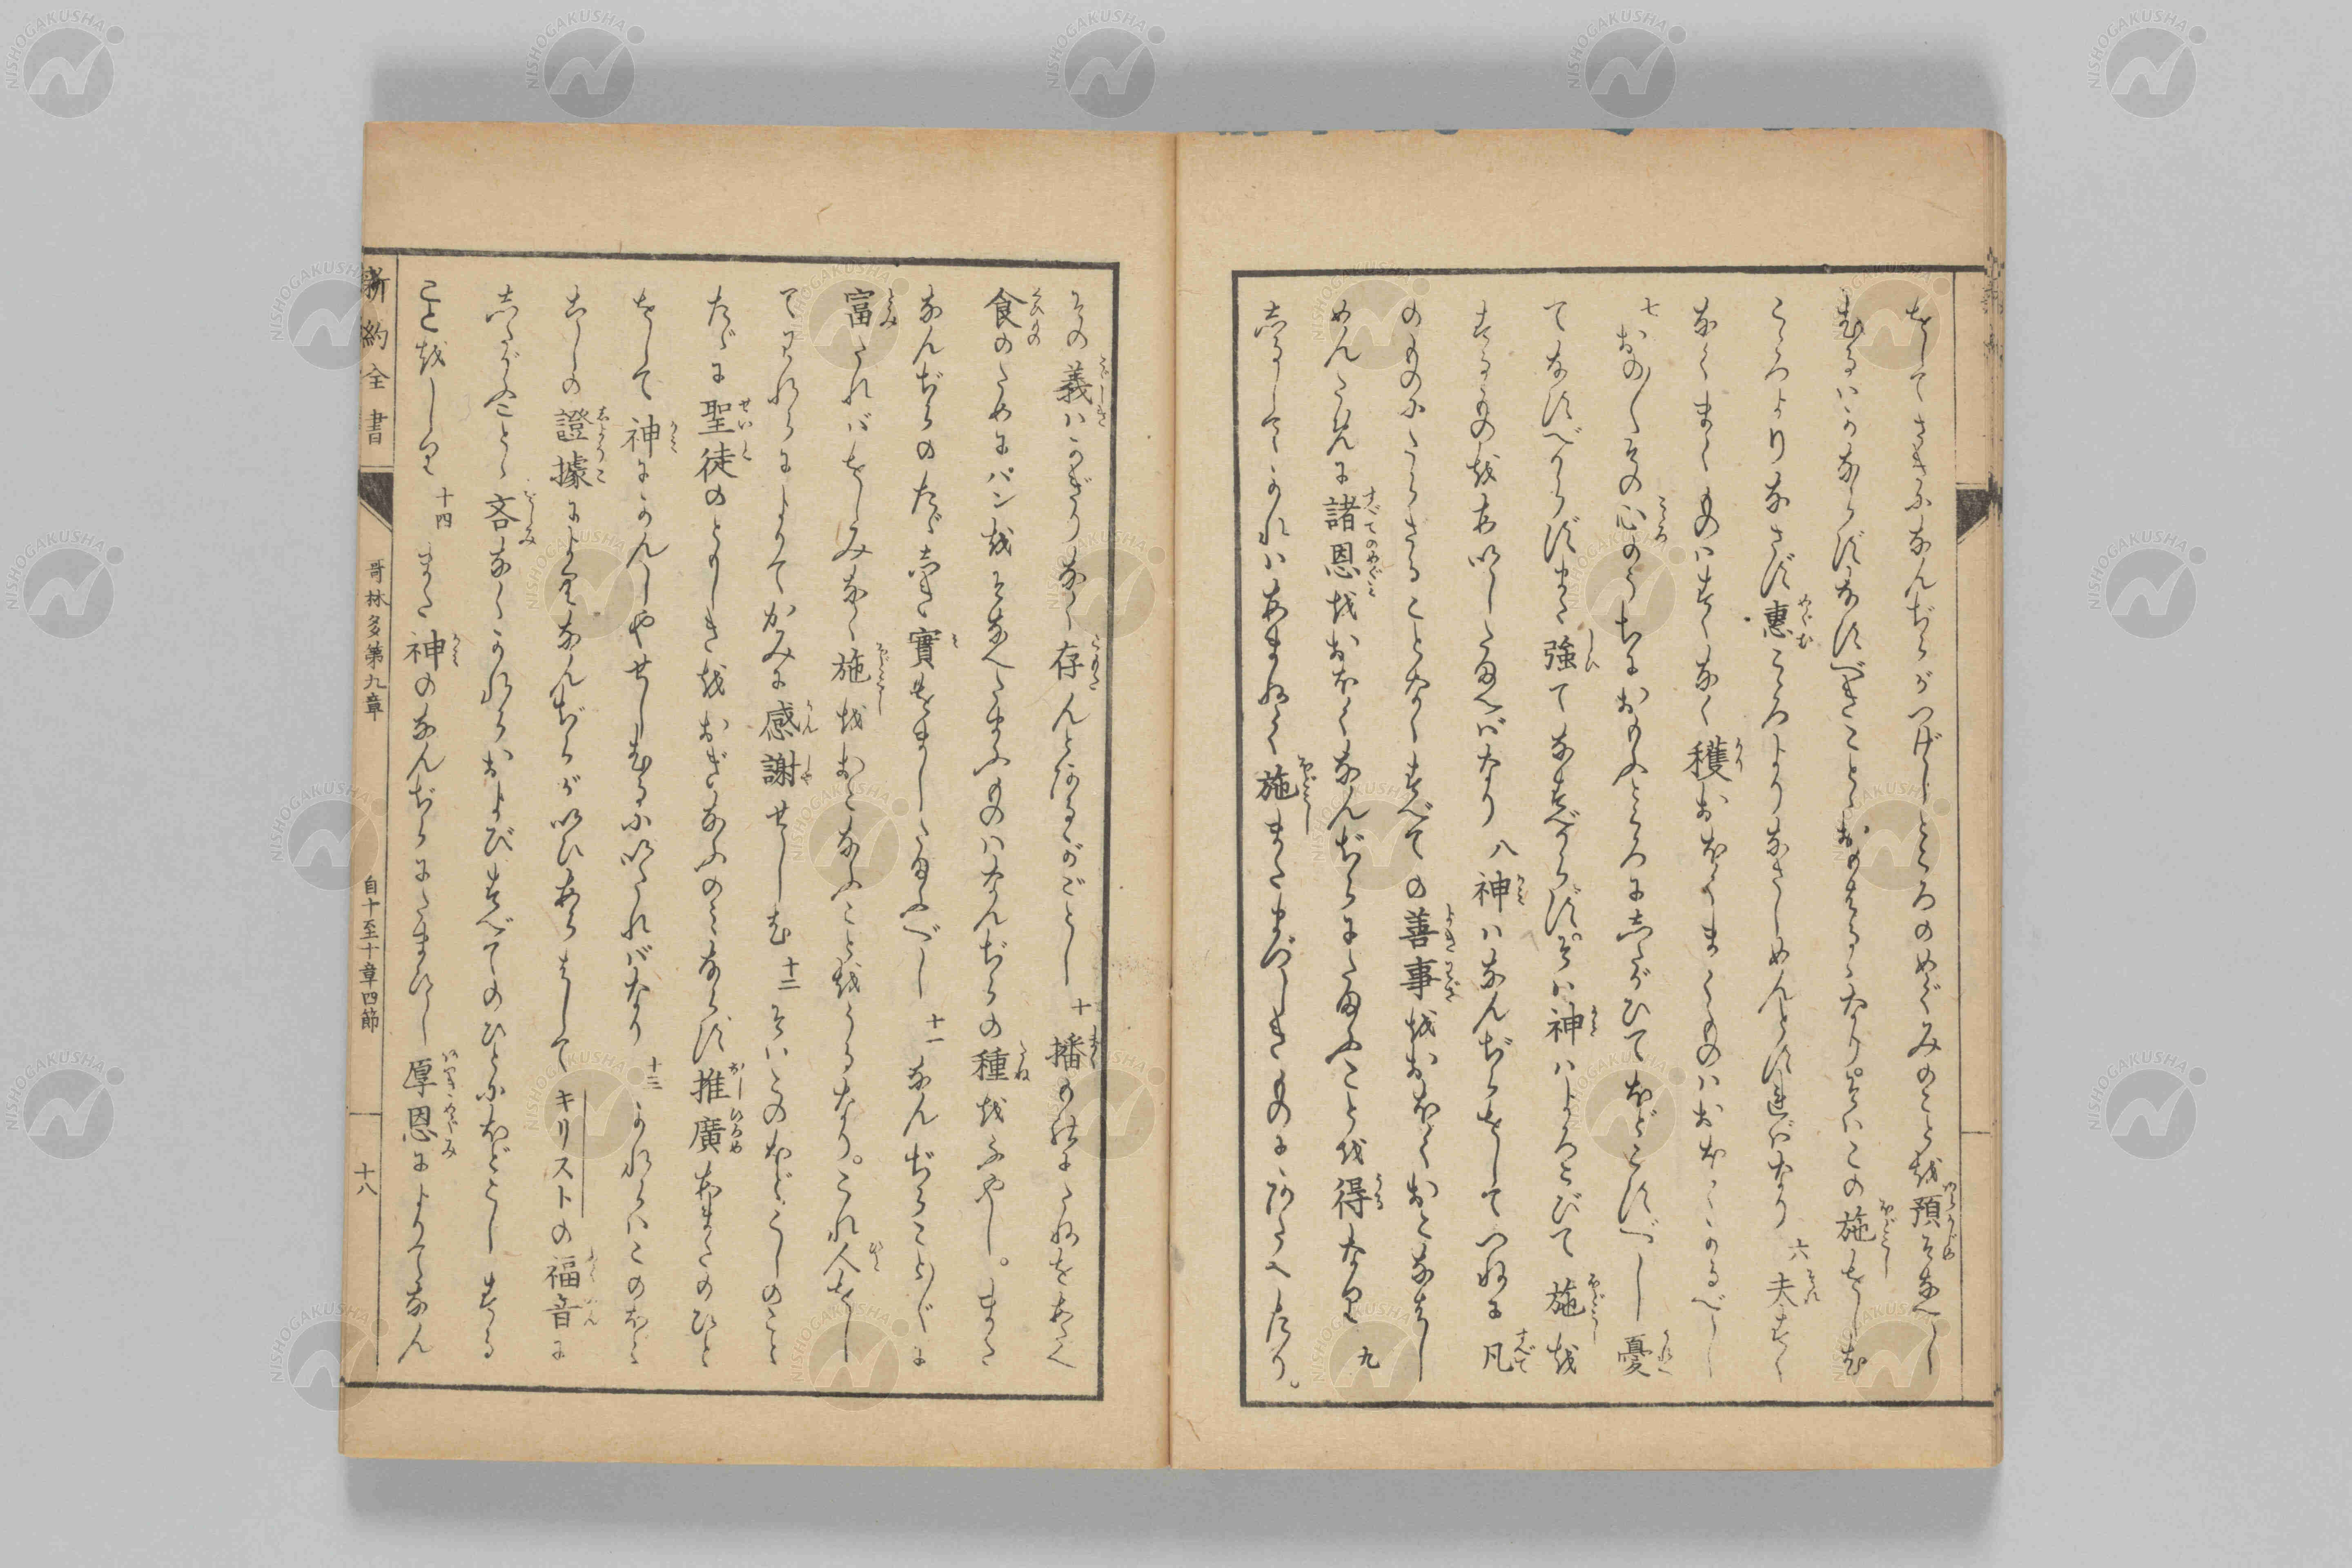 をしてさきになんぢらがつげしところのめぐみのことを預そなへし
むるハかならずなすべきことゝおもはるゝなり。そハこの施をしむ
こゝろよりなさず惠こゝろよりなさしめんとすれバなり 六 夫すく
なくまくものハすくなく穫おほくまくものハおほくかるべし
七 おの〳〵その心のうちにおもふところにしたがひてほどこすべし憂
てなすべからずまた強てなすべからず。そハ神ハよろこびて施を
するものをあいしたまへバなり 八 神ハなんぢらをしてつねに凡
のものにたらざることなくすべての善事をおほくおこなはし
めんために諸恩をおほくなんぢらにたまふことを得なり 九
しるして かれハあまねく施 またまづしきものにあたへたり。
その義ハかぎりなく存んとあるがごとし 十 播ものにたねをあたへ
食のためにパンをそなへたまふものハなんぢらの種をふやし。また
なんぢらのたゞしき實をましたまふべし 十一 なんぢらこと〴〵に
富たれバをしみなく施をおこなふことをうるなり。これ人をし
てわれらによりてかみに感謝せしむ 十二 そハこのほどこしのこと
たゞに聖徒のともしきをおぎなふのミならず推廣あまたのひと
をして神にかんしやせしむるにいたれバなり 十三 かれらハこのほどこ
こしの證據によりなんぢらがいひあらはしてキリストの福音に
したがふことゝ吝なくかれらおよびすべてのひとにほどこしする
ことをしり 十四 また神のなんぢらにたまひし厚恩によりてなん
新約全書
哥林多第九章
自十至十章四節
十八